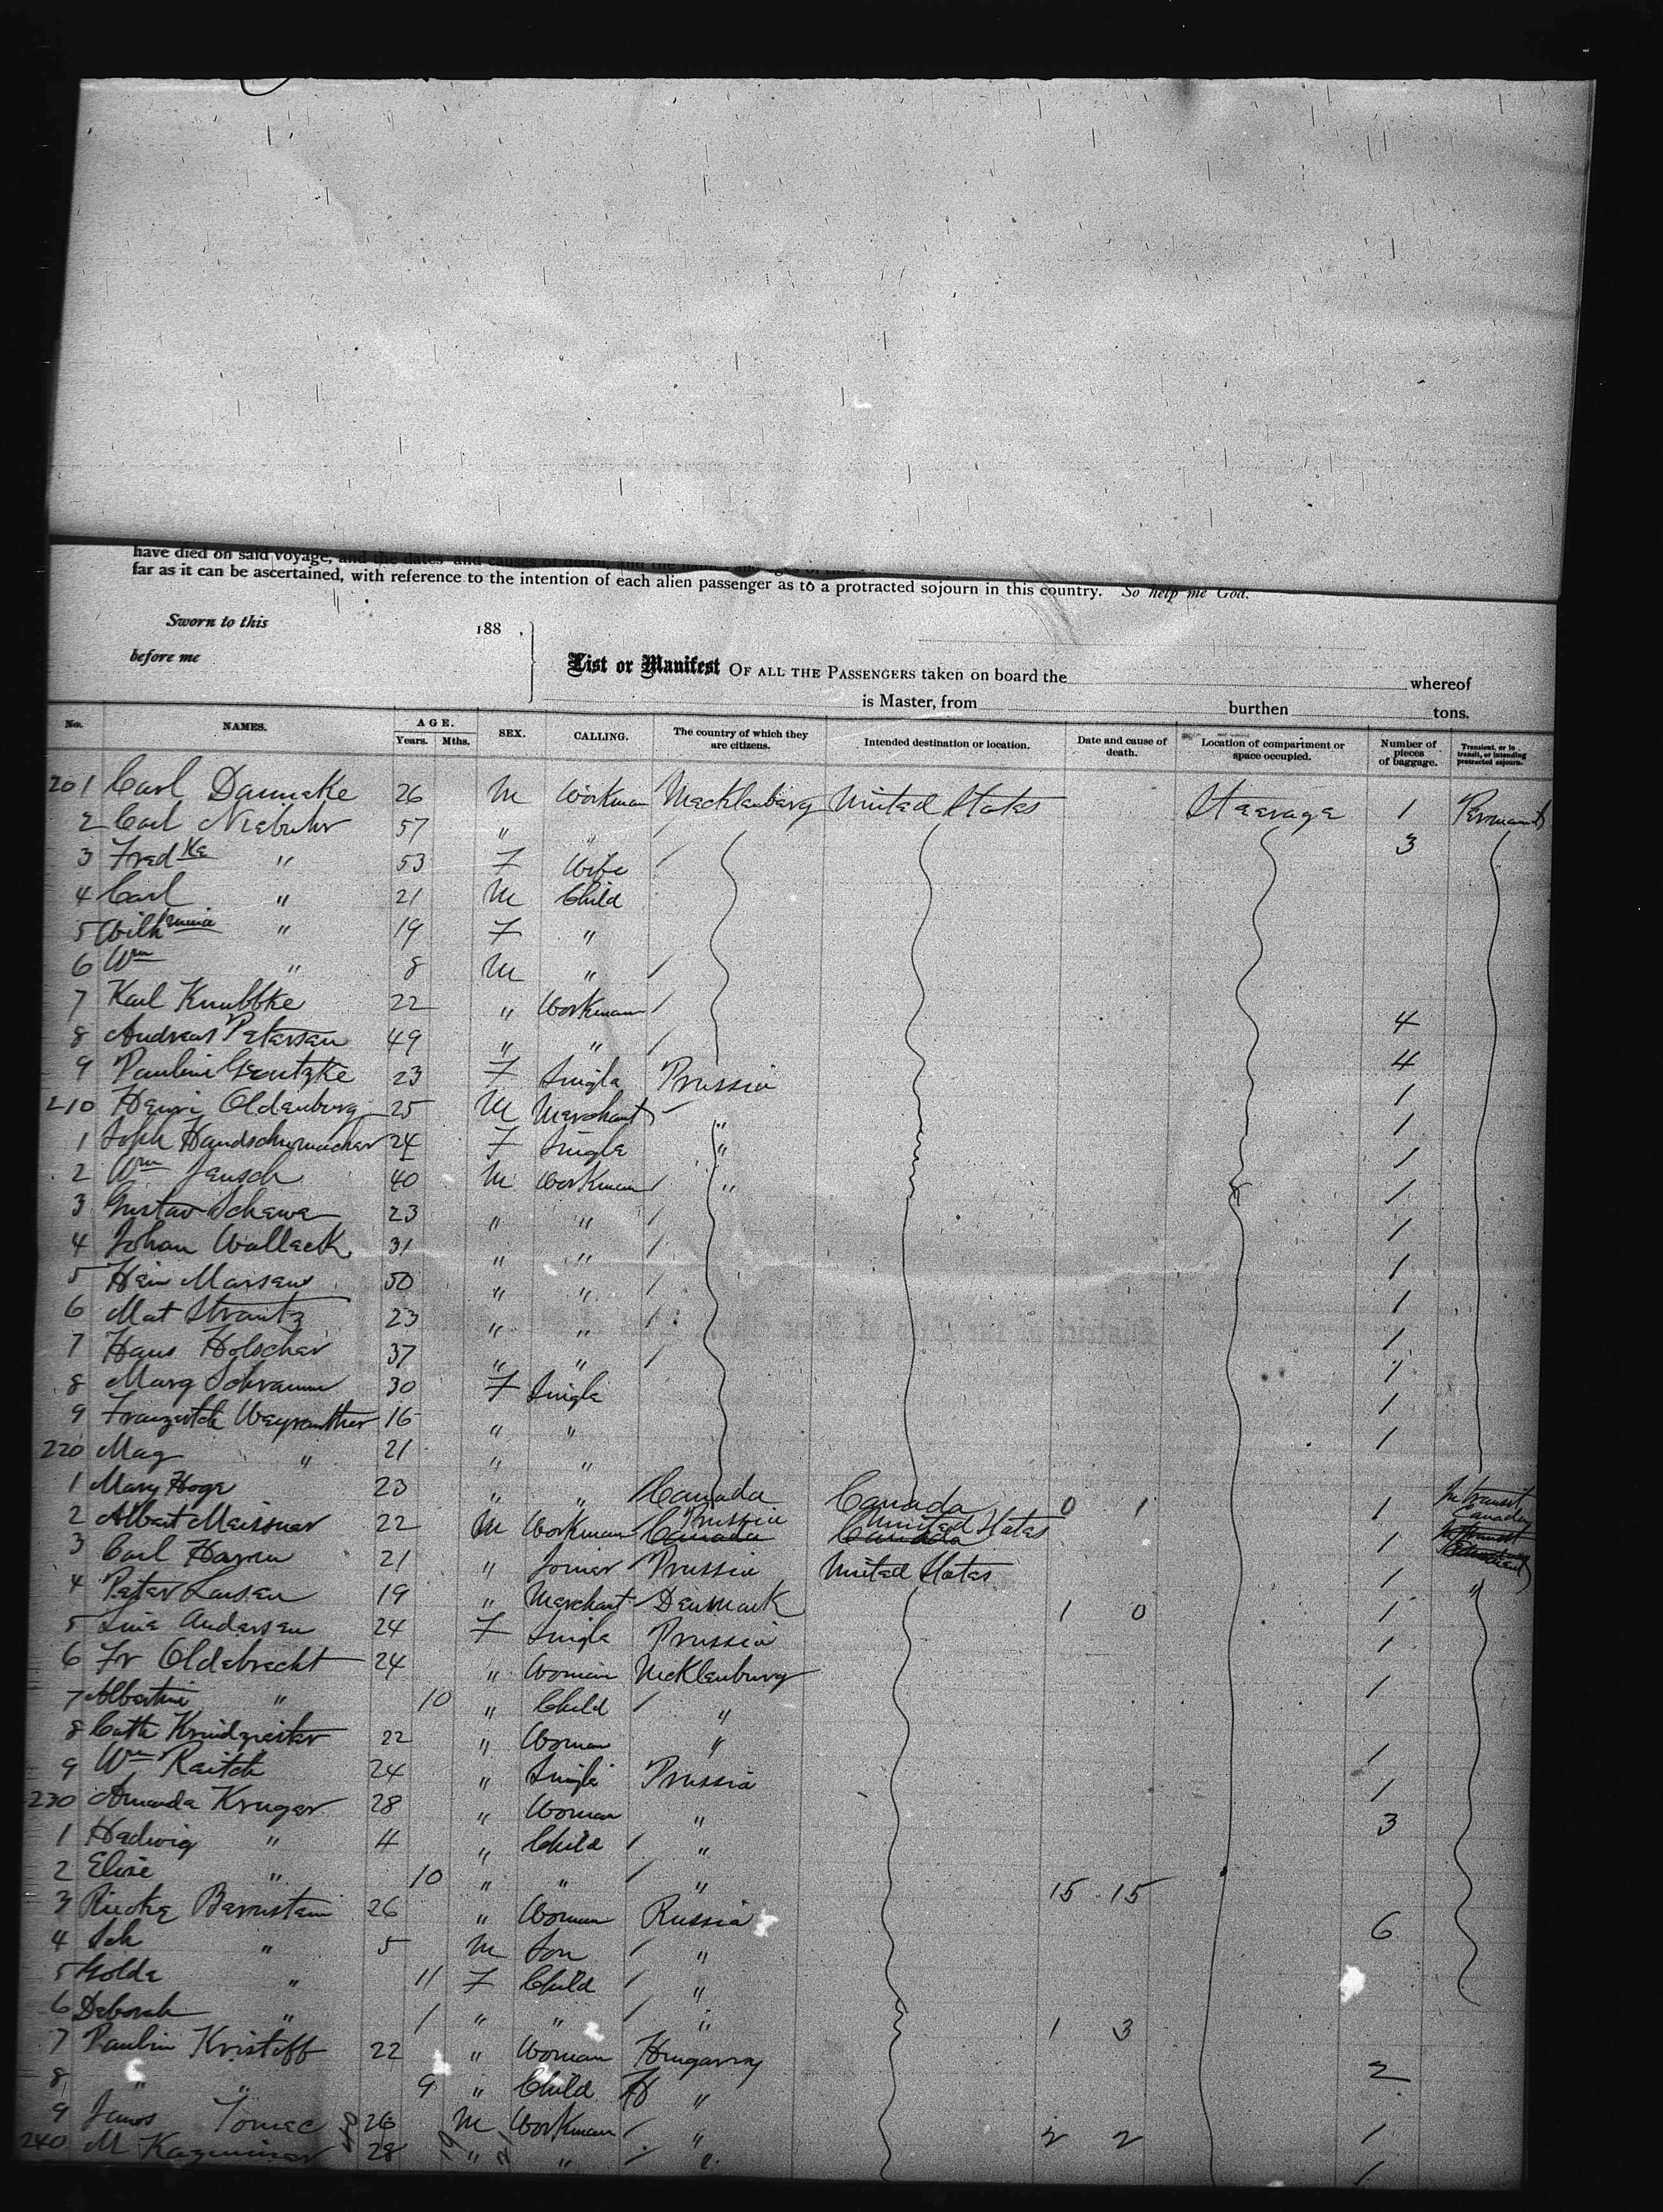 have died on said voyage, and the dates and causes of death, and the
far as it can be ascertained, with reference to the intention of each alien passenger as to a protracted sojourn in this country. So help me God.
Sworn to this 188 ,
before me
List or Manifest OF ALL THE PASSENGERS taken on board the whereof
is Master, from burthen tons.
No. NAMES. AGE. Years. Mths. SEX. CALLING. The country of which they are citizens. Intended destination or location. Date and cause of death. Location of compartment or space occupied. Number of pieces of baggage. Transient, or in transit, or intending protracted sojourn.
201 Carl Dannake 26 M Workman Mecklenburg United States Steerage 1
2 Carl Niebuhr 57 " " 3
3 Fredke " 53 F Wife
4 Carl " 21 M Child
5 Wilhemnia " 19 F "
6 Wm " 8 M "
7 Karl Knubbke 22 " Workman 4
8 Andreas Petersen 49 " " 4
9 Pauline 23 F Single Prussia 1
210 Henri Oldenburg 25 M Merchant " 1
1 Soph Handschumacher 24 F Single " 1
2 Wm Jensch 40 M Workman " 1
3 Gustav Schewe 23 " " 1
4 Johan Wallack 31 " " 1
5 Hein Marsens 50 " " 1
6 Mat Strantz 23 " " 1
7 Hans Holscher 37 " " 1
8 Marg Schramm 30 F Single 1
9 16 " " 1
220 Mag " 21 " "
1 Mary Hoge 23 " " Canada Canada 0 1 1 In transit Canada
2 Albert Meissner 22 M Workman Prussia United States 1
3 Carl 21 " Joiner Prussia United States 1 "
4 Peter 19 " Merchant Denmark 1 0 1
5 Line Andersen 24 F Single Prussia 1
6 Fr Oldebrecht 24 " Woman Mecklenburg 1
7 Albertine " 10 " Child "
8 Cath 22 " Woman " 1
9 Wm Raitch 24 " Single Prussia 1
230 Amanda Kruger 28 " Woman " 3
1 Hedwig " 4 " Child "
2 Elise " 10 " " " 15 15
3 Riecke Bernstein 26 " Woman Russia 6
4 Sch " 5 M Son "
5 Golde " 11 F Child "
6 Deborah " 1 " " " 1 3
7 Paulin Kristoff 22 " Woman Hungarry 2
8 " " 9 " Child "
9 Janos Tomec 26 M Workman " 2 2 1
240 M 28 " " " 1